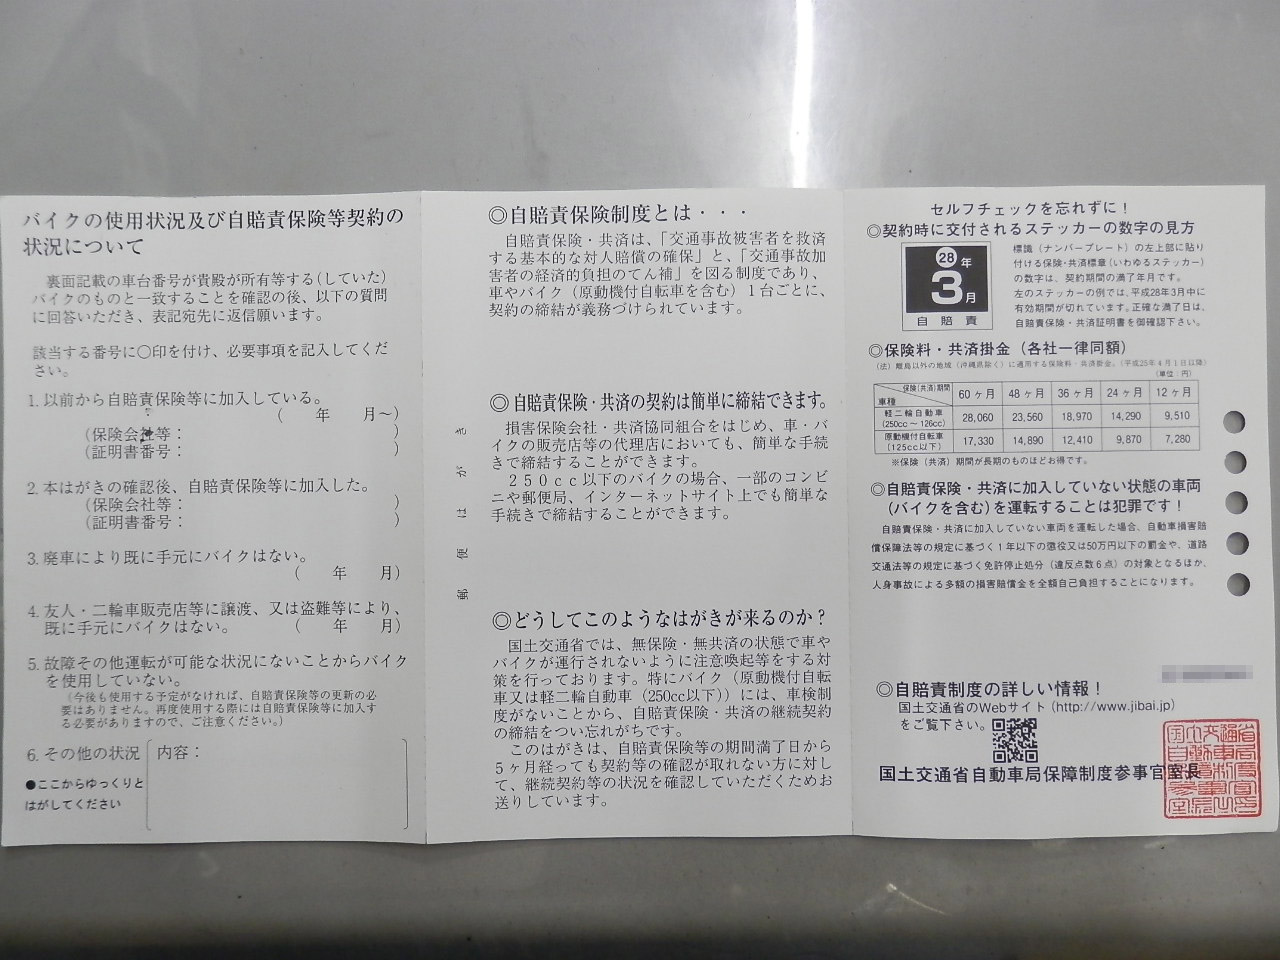 バイクの使用状況及び自賠責保険等契約の
状況について
裏面記載の車台番号が貴殿が所有等する(していた)
バイクのものと一致することを確認の後、以下の質問
に回答いただき、表記宛先に返信願います。
該当する番号に○印を付け、必要事項を記入してくだ
さい。
1. 以前から自賠責保険等に加入している。
(　　年　　月〜)
(保険会社等：　　　　　　　　)
(証明書番号：　　　　　　　　)
2. 本はがきの確認後、自賠責保険等に加入した。
(保険会社等：　　　　　　　　)
(証明書番号：　　　　　　　　)
3. 廃車により既に手元にバイクはない。
(　　年　　月)
4. 友人・二輪車販売店等に譲渡、又は盗難等により、
既に手元にバイクはない。　　(　　年　　月)
5. 故障その他運転が可能な状況にないことからバイク
を使用していない。
(今後も使用する予定がなければ、自賠責保険等の更新の必
要はありません。再度使用する際には自賠責保険等に加入す
る必要がありますので、ご注意ください。)
6. その他の状況　内容：
●ここからゆっくりと
はがしてください
郵便はがき
◎自賠責保険制度とは・・・
自賠責保険・共済は、「交通事故被害者を救済
する基本的な対人賠償の確保」と、「交通事故加
害者の経済的負担のてん補」を図る制度であり、
車やバイク（原動機付自転車を含む）１台ごとに、
契約の締結が義務づけられています。
◎自賠責保険・共済の契約は簡単に締結できます。
損害保険会社・共済協同組合をはじめ、車・バ
イクの販売店等の代理店においても、簡単な手続
きで締結することができます。
２５０ｃｃ以下のバイクの場合、一部のコンビ
ニや郵便局、インターネットサイト上でも簡単な
手続きで締結することができます。
◎どうしてこのようなはがきが来るのか？
国土交通省では、無保険・無共済の状態で車や
バイクが運行されないように注意喚起等をする対
策を行っております。特にバイク（原動機付自転
車又は軽二輪自動車（250cc以下））には、車検制
度がないことから、自賠責保険・共済の継続契約
の締結をつい忘れがちです。
このはがきは、自賠責保険等の期間満了日から
５ヶ月経っても契約等の確認が取れない方に対し
て、継続契約等の状況を確認していただくためお
送りしています。
セルフチェックを忘れずに！
◎契約時に交付されるステッカーの数字の見方
28年
3月
自賠責
標識（ナンバープレート）の左上部に貼り
付ける保険・共済標章（いわゆるステッカー）
の数字は、契約期間の満了年月です。
左のステッカーの例では、平成28年3月中に
有効期間が切れています。正確な満了日は、
自賠責保険・共済証明書を御確認下さい。
◎保険料・共済掛金（各社一律同額）
（注）離島以外の地域（沖縄県除く）に適用する保険料・共済掛金。（平成25年４月１日以降）
（単位：円）
車種　保険(共済)期間　60ヶ月　48ヶ月　36ヶ月　24ヶ月　12ヶ月
軽二輪自動車（250cc〜126cc）　28,060　23,560　18,970　14,290　9,510
原動機付自転車（125cc以下）　17,330　14,890　12,410　9,870　7,280
※保険（共済）期間が長期のものほどお得です。
◎自賠責保険・共済に加入していない状態の車両
(バイクを含む)を運転することは犯罪です！
自賠責保険・共済に加入していない車両を運転した場合、自動車損害賠
償保障法等の規定に基づく１年以下の懲役又は50万円以下の罰金や、道路
交通法等の規定に基づく免許停止処分（違反点数６点）の対象となるほか、
人身事故による多額の損害賠償金を全額自己負担することになります。
◎自賠責制度の詳しい情報！
国土交通省のWebサイト（http://www.jibai.jp）
をご覧下さい。
国土交通省自動車局保障制度参事官室長